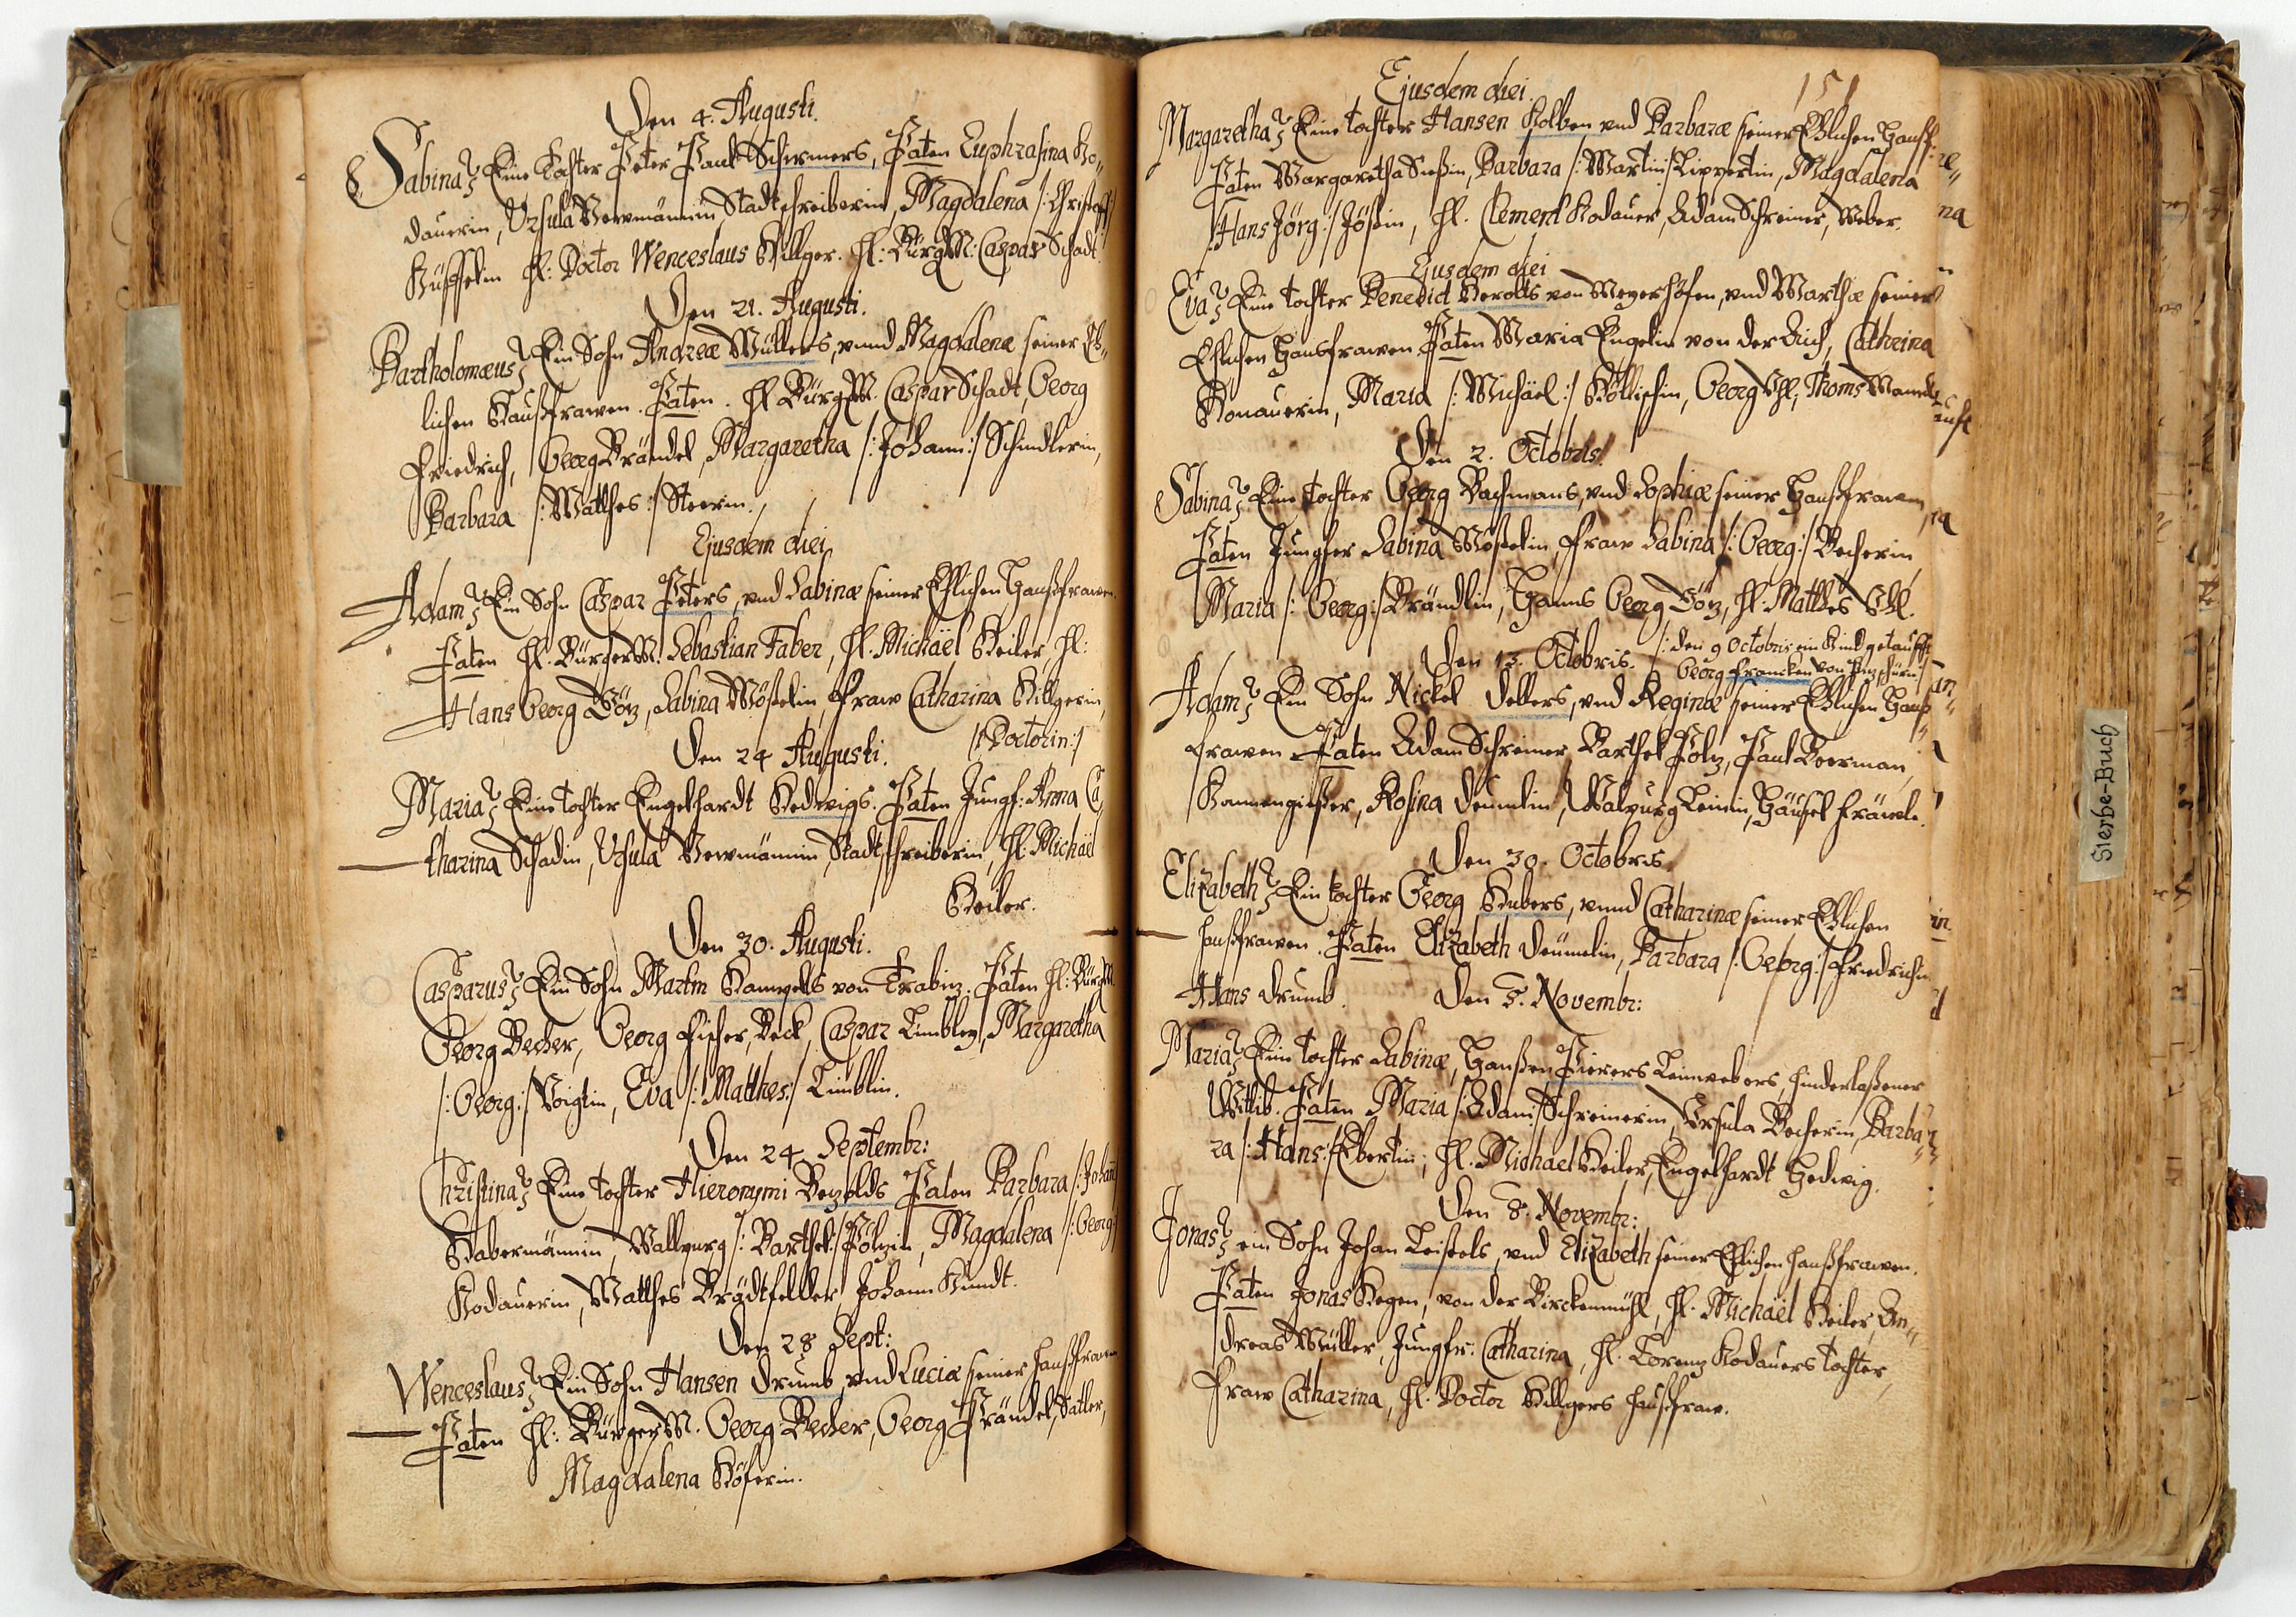 Den 4. Augusti.
Sabina, Eine Tochter Peter Paul Schirmers, Paten Euphrasina Ko„
dauerin, Ursula Newmännin Stadtschreiberin, Magdalena /: Christoff
Hl: Doctor Wenceslaus Hillger. Hl: BürgM: Caspar Schadt.
Den 21. Augusti.
Bartholomæus, Ein Sohn Andreæ Müllers, unnd Magdalenæ seiner Eh„
lichen Haußfrawen. Paten. Hl BürgM. Caspar Schadt, Georg
Friedrich, Georg Brändel, Margaretha /: Johann :/ Schindlerin,
Barbara /: Matthes :/ Steerin.
Ejusdem diei
Adam, Ein Sohn Caspar Peters, und Sabinæ seiner Ehlichen Haußfrawen.
Paten Hl. BürgerM. Sebastian Faber, Hl. Michäel Heiler, Hl:
Hans Georg Götz, Sabina Mößelin, Fraw Catharina Hillgerin,
Den 24 Augusti. /: Doctorin :/
Maria, Eine Tochter Engelhardt Hedwigs. Paten Jungf: Anna Ca
tharina Schadin, Ursula Newmännin, Stadtschreiberin, Hl. Michäel
Heiler.
Den 30. Augusti.
Casparus, Ein Sohn Martin Hampels von Trabitz. Paten Hl: BürgM
Georg Becher, Georg Fischer, Beck, Caspar Limbley, Margaretha
/: Georg :/ Voigtin, Eva /: Matthes :/ Limblin.
Den 24 Septembr:
Christina, Eine Tochter Hieronymi Betzolds Paten Barbara /: Johann
Habermännin, Wallpurg /: Barthel :/ Pöltzin, Magdalena /: Georg :/
Kodauerin, Matthes Brädtfelder, Johann Kündt.
Den 28 Sept:
Wenceslaus, Ein Sohn Hansen Drumb, und Luciæ seiner Haußfrawen
Paten Hl: BürgerM. Georg Becher, Georg Brändel, Satler,
Magdalena Höferin.
151
Ejusdem diei.
Margaretha, Eine Tochter Hansen Kolben und Barbaræ seiner Ehlichen Hauß
Paten Margaretha Süßin, Barbara /: Martin :/ Lippertin, Magdalena
/: Hans Jörg :/ Jößin, Hl. Clement Kodauer, Adam Schreiner, Weber.
Ejusdem diei
Eva, Eine Tochter Benedict Herolts von Meyerhöfen, und Marthæ seiner
Ehlichen Haußfrawen Paten Maria Engelin von der Aich, Cathrina
Konauerin, Maria /: Michäel :/ Köllischin, Georg Uhl, Thoms
Den 2. Octobris.
Sabina, Eine Tochter Georg Bachmans, und Sophiæ seiner Haußfrawen,
Paten Jungfer Sabina Mößelin, Fraw Sabina /: Georg :/ Becherin,
Maria /: Georg :/ Brändlin, Hanns Georg Götz, Hl. Matthes Uhl.
Den 13. Octobris.
/: den 9 Octobris ein Kind getaufft
Georg Francken von
Adam, Ein Sohn Nickel Dellers, und Reginæ seiner Ehlichen Hauß
frawen Paten Adam Schreiner, Barthel Pöltz, Paul Beerman,
Kannengießer, Rosina Deumlin, Walpurg
Den 30. Octobris.
Elizabeth, Ein Tochter Georg Hubers, unnd Catharinæ seiner Ehlichen
haußfrawen. Paten Elizabeth Deümelin, Barbara /: Georg :/ Friedrichin
Hans Drumb.
Den 5. Novembr:
Maria, Eine Tochter Sabinæ, Hanßen Pierers Leinwebers, hinderlaßener
Wittib. Paten Maria /: Adam :/ Schreinerin, Ursula Becherin, Barba„
ra /: Hans :/ Ebertin, Hl. Michael Heiler, Engelhardt Hedwig.
Den 8. Novembr:
Jonas, ein Sohn Johan Leißels, und Elizabeth seiner Ehlichen haußfrawen.
Paten Jonas Hegen, von der Birckenmühl, Hl. Michäel Heiler, An„
dreas Müller, Jungfr: Catharina, Hl. Lorenz Kodauers Tochter,
Fraw Catharina, Hl. Doctor Hillgers haußfraw.
Sterbe-Buch